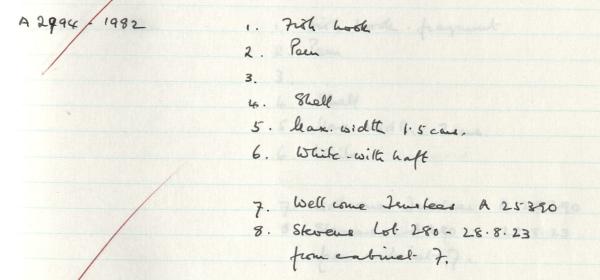 A 2994 - 1982
1. Fish hook
2. Pain
3.
4. Shell
5. Max. width 1.5 cms.
6. White - with haft
7. Wellcome Trustees A 25390
8. Stevens Lot 280 - 28.8.23
from cabinet 7.